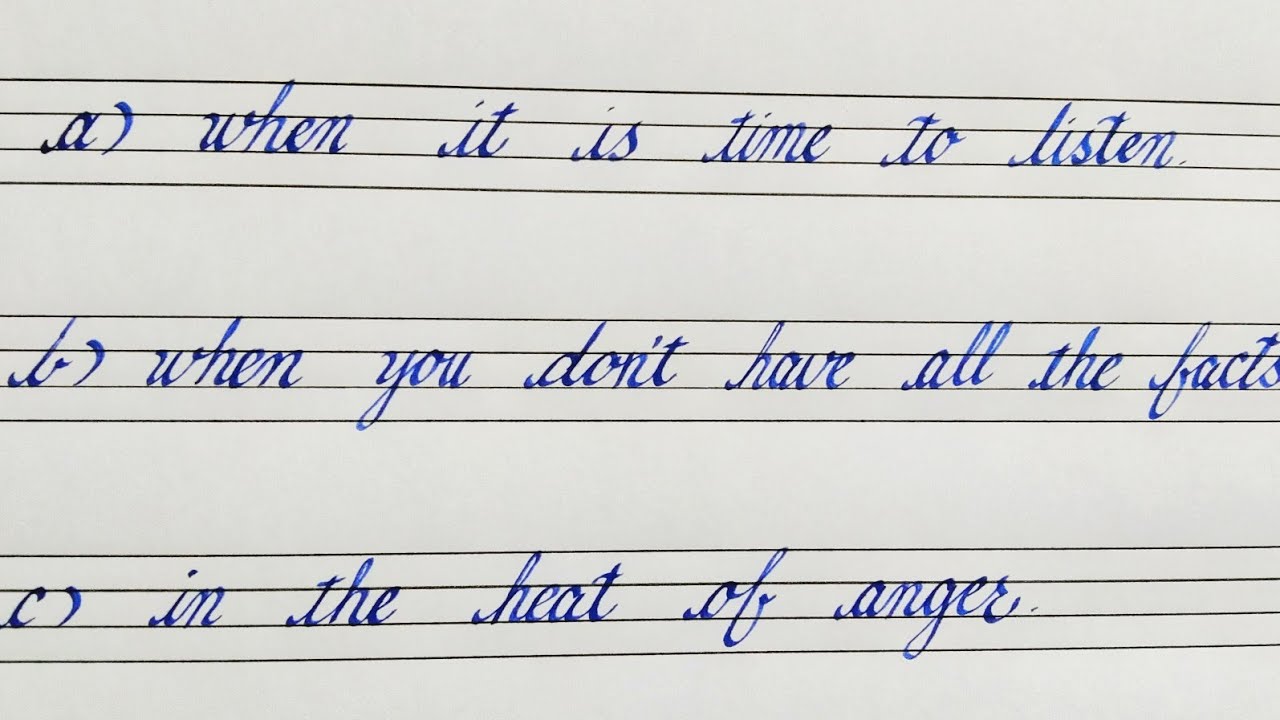 a) when it is time to listen.
b) when you don't have all the facts
c) in the heat of anger.